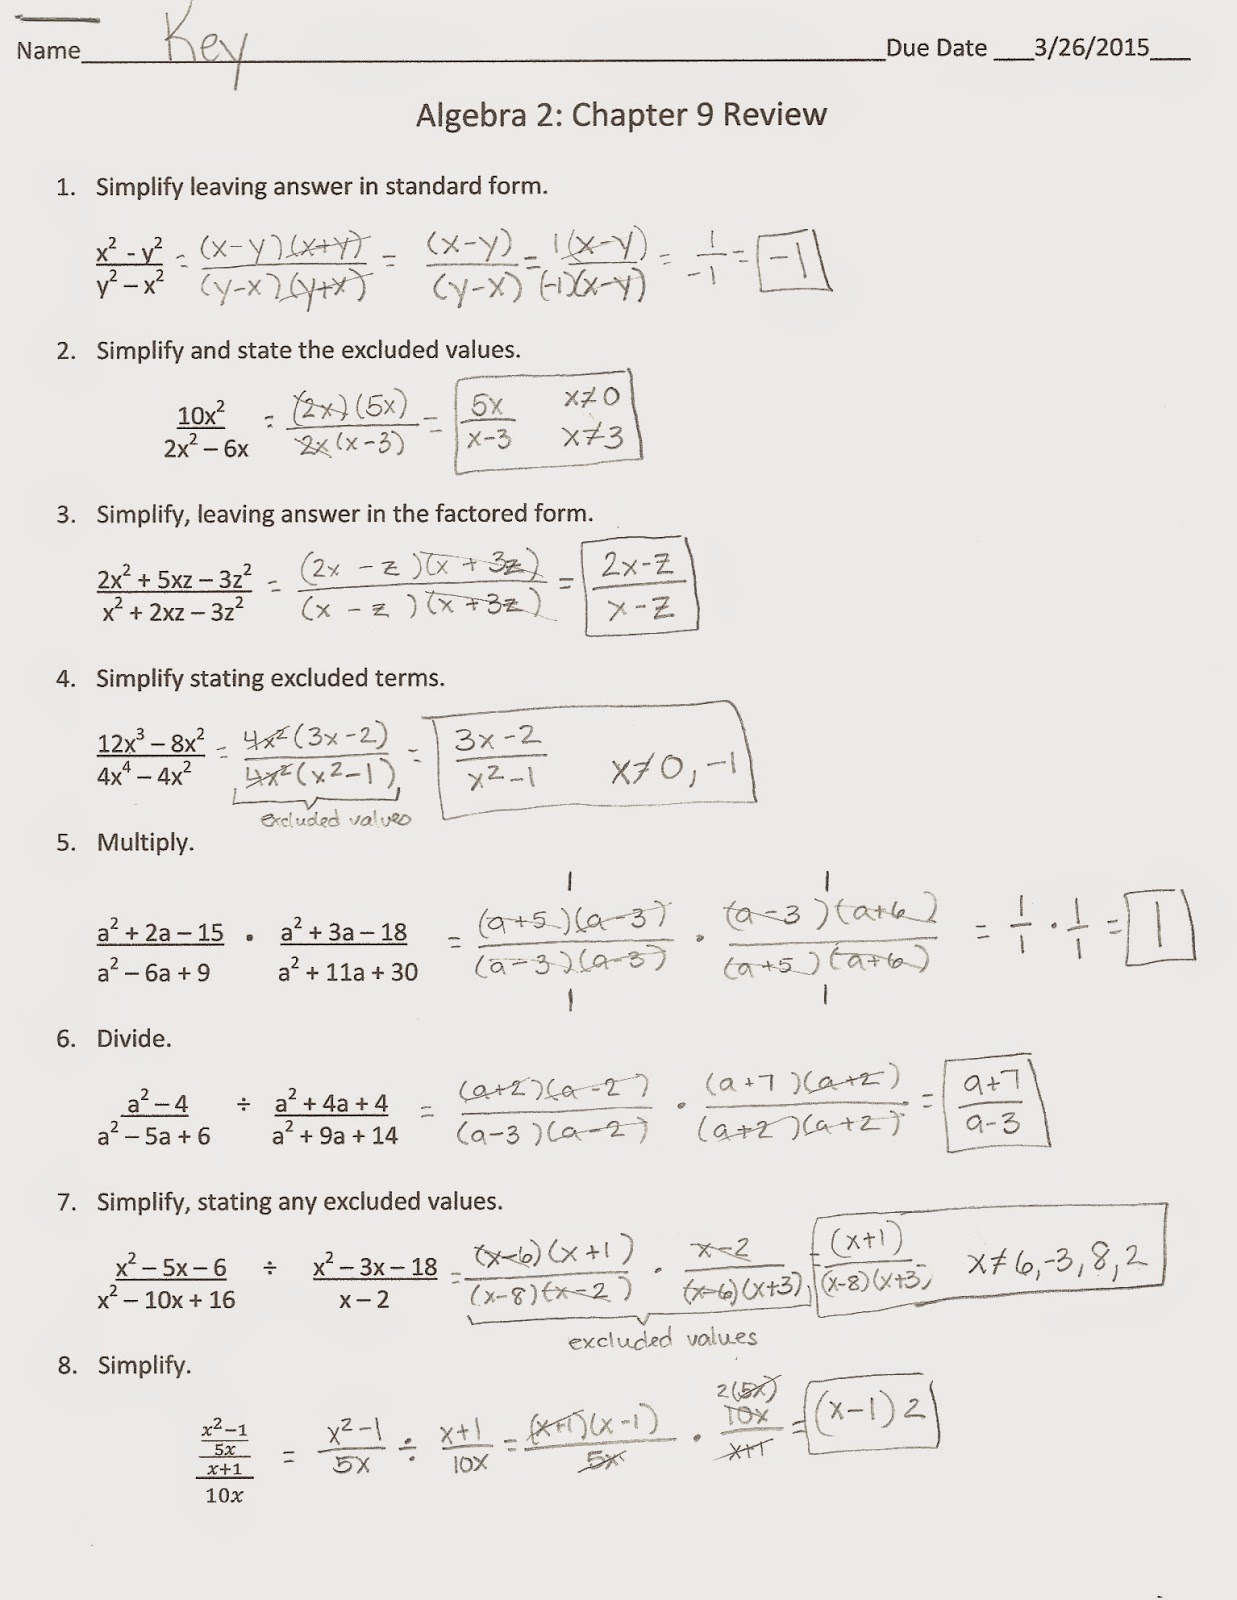 Name Key Due Date 3/26/2015
Algebra 2: Chapter 9 Review
1. Simplify leaving answer in standard form.
x² - y² / y² – x² = (x-y)(x+y) / (y-x)(y+x) = (x-y) / (y-x) = 1(x-y) / (-1)(x-y) = 1 / -1 = -1
2. Simplify and state the excluded values.
10x² / 2x² – 6x = (2x)(5x) / 2x(x-3) = 5x / x-3 x≠0 x≠3
3. Simplify, leaving answer in the factored form.
2x² + 5xz – 3z² / x² + 2xz – 3z² = (2x - z)(x + 3z) / (x - z)(x + 3z) = 2x-z / x-z
4. Simplify stating excluded terms.
12x³ – 8x² / 4x⁴ – 4x² = 4x²(3x-2) / 4x²(x²-1) = 3x-2 / x²-1 x≠0,-1
excluded values
5. Multiply.
a² + 2a – 15 / a² – 6a + 9 • a² + 3a – 18 / a² + 11a + 30 = 1 (a+5)(a-3) / (a-3)(a-3) 1 • 1 (a-3)(a+6) / (a+5)(a+6) 1 = 1/1 • 1/1 = 1
6. Divide.
a² – 4 / a² – 5a + 6 ÷ a² + 4a + 4 / a² + 9a + 14 = (a+2)(a-2) / (a-3)(a-2) • (a+7)(a+2) / (a+2)(a+2) = a+7 / a-3
7. Simplify, stating any excluded values.
x² – 5x – 6 / x² – 10x + 16 ÷ x² – 3x – 18 / x – 2 = (x-6)(x+1) / (x-8)(x-2) • x-2 / (x-6)(x+3) = (x+1) / (x-8)(x+3) x≠6,-3,8,2
excluded values
8. Simplify.
x²–1 / 5x / x+1 / 10x = x²-1 / 5x ÷ x+1 / 10x = (x+1)(x-1) / 5x • 2(5x) 10x / x+1 = (x-1)2